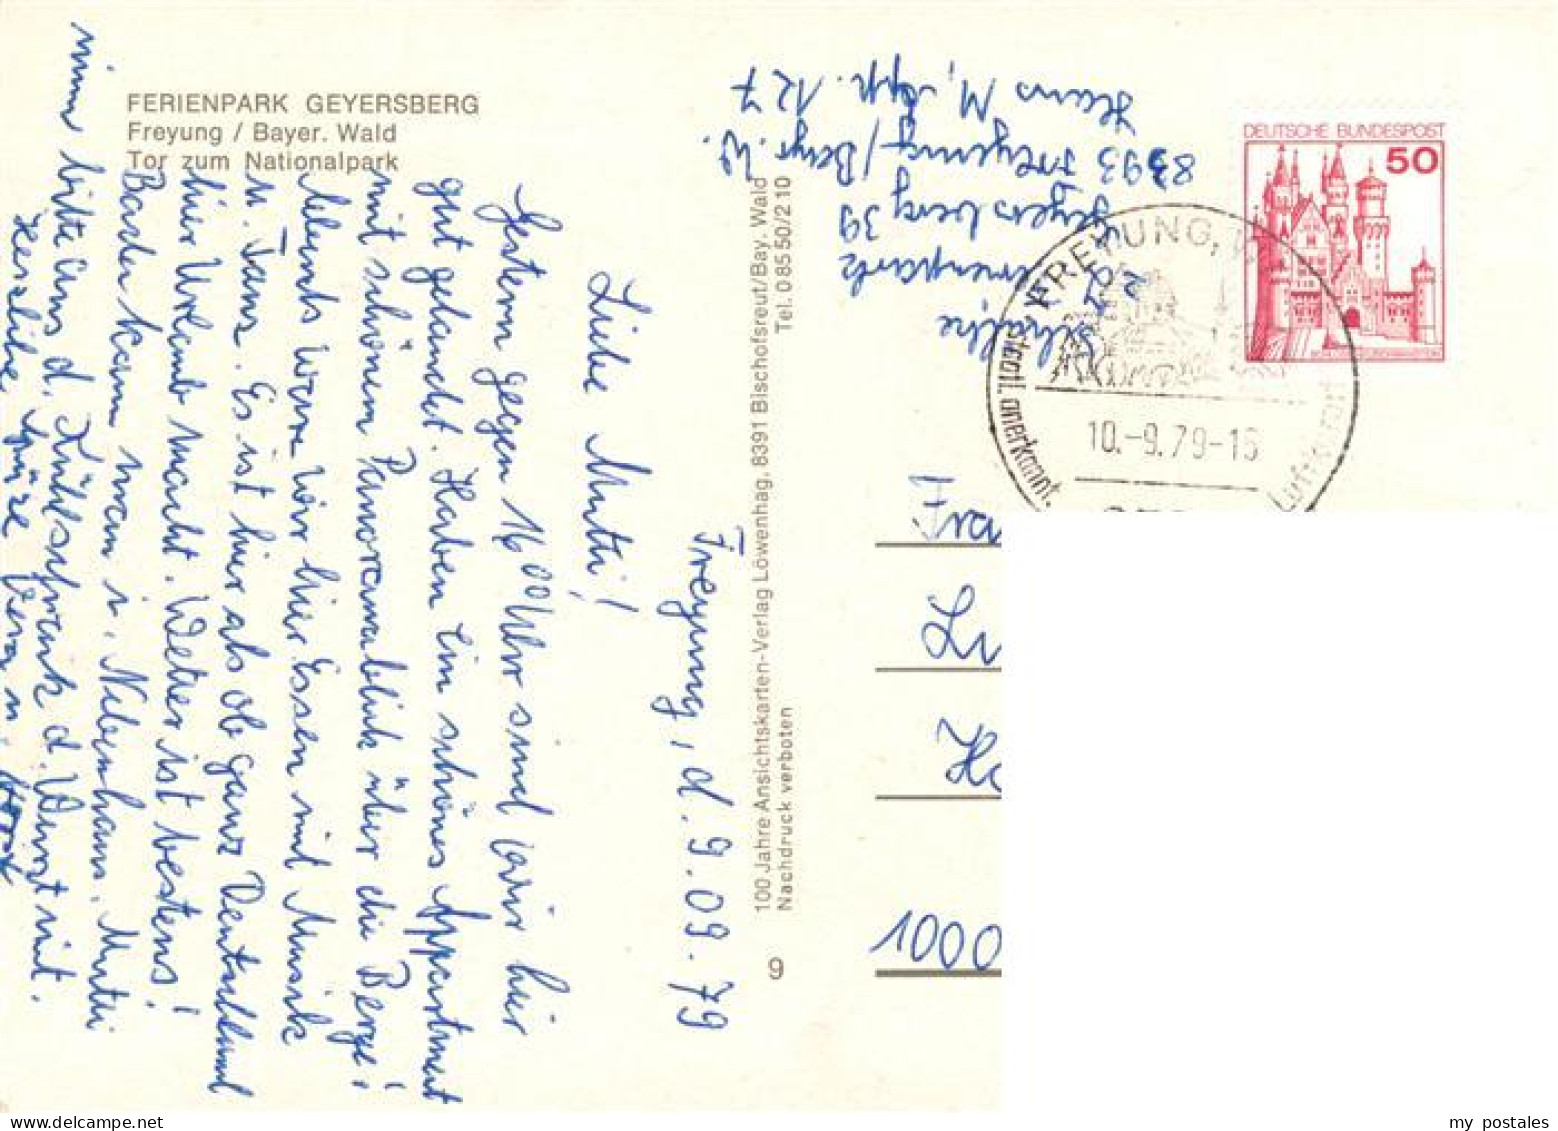 FERIENPARK GEYERSBERG
Freyung / Bayer. Wald
Tor zum Nationalpark
Freyung, d. 9.09.79
Liebe Mutti!
Gestern gegen 16 00 Uhr sind wir hier
gut gelandet. Haben ein schönes Appartment
mit schönem Panoramablick über die Berge!
Abends waren wir hier Essen mit Musik
u. Tanz. Es ist hier als ob ganz Deutschland
hier Urlaub macht. Wetter ist bestens!
Baden kann man i. Nebenhaus. Mutti
nimm bitte aus d. Kühlschrank d. Wurst mit.
Herzliche Grüße Vera u. Horst
100 Jahre Ansichtskarten-Verlag Löwenhag, 8391 Bischofsreut/Bay. Wald
Nachdruck verboten
Tel. 0 85 50/2 10
9
Geyersberg 39
8393 Freyung/Bayr. W.
Haus M, App. 127
DEUTSCHE BUNDESPOST
50
FREYUNG, W
staatl. anerkannt.
Luftkurort
10.-9.79-16
1000
my postales